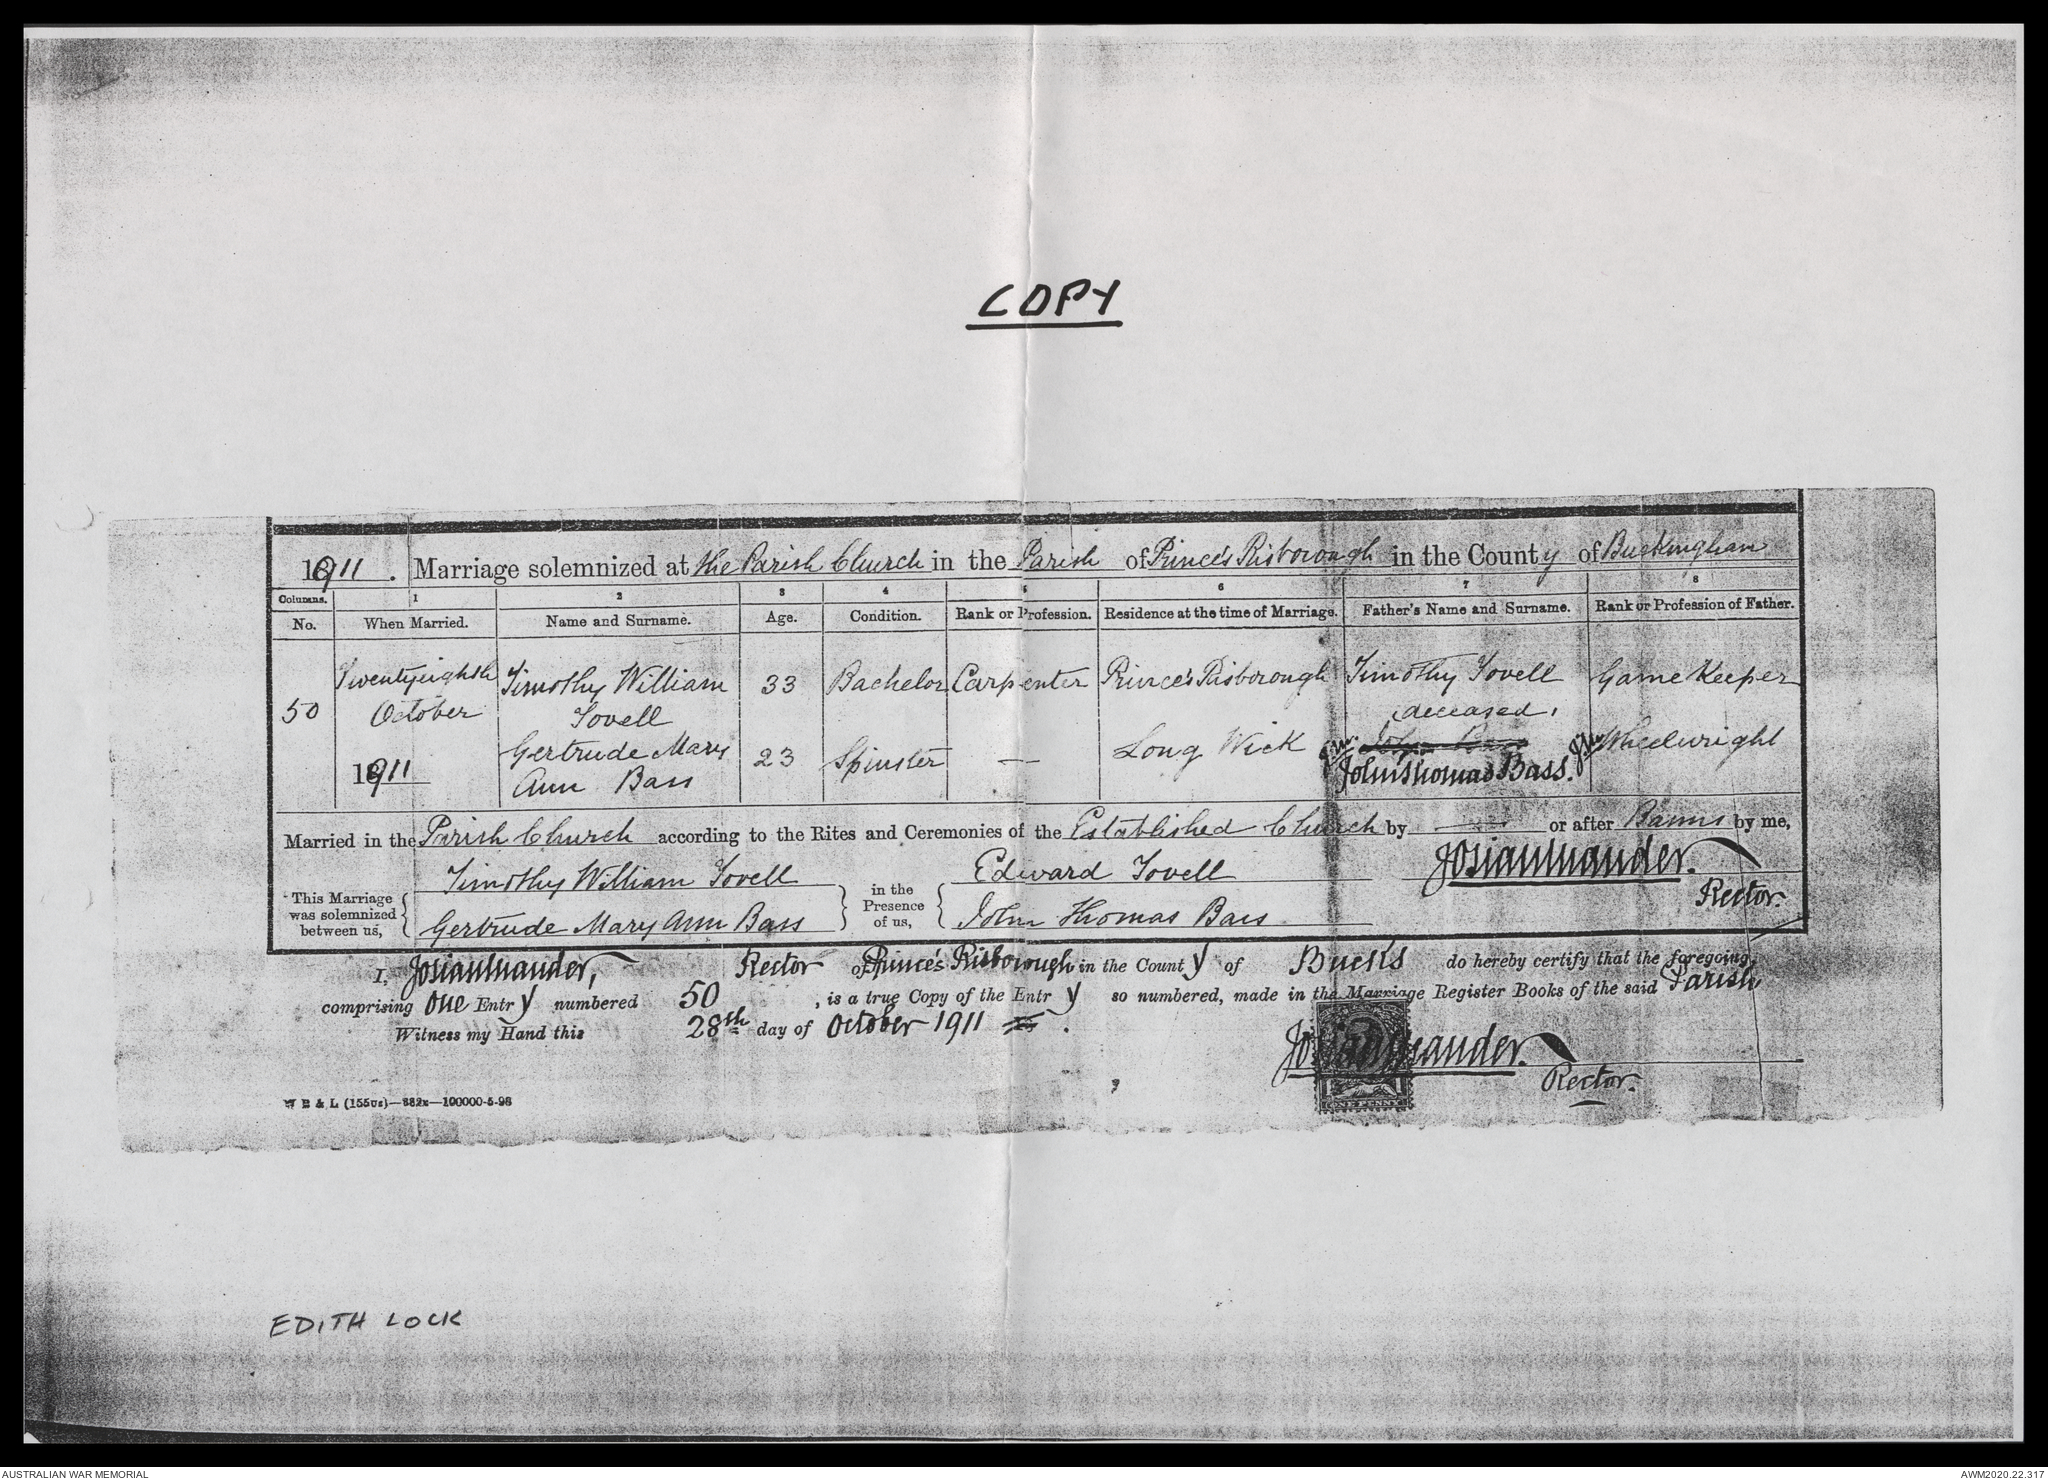 COPY
1911. Marriage solemnized at the Parish Church in the Parish of Prince's Risborough in the County of Buckingham
Columns. 1 2 3 4 5 6 7 8
No. When Married. Name and Surname. Age. Condition. Rank or Profession. Residence at the time of Marriage. Father's Name and Surname. Rank or Profession of Father.
50 Twentyeighth October 1911
Timothy William Tovell 33 Bachelor Carpenter Prince's Risborough Timothy Tovell deceased, Game Keeper
Gertrude Mary Ann Bass 23 Spinster — Long Wick John Bass John Thomas Bass. Wheelwright
Married in the Parish Church according to the Rites and Ceremonies of the Established Church by — or after Banns by me,
This Marriage was solemnized between us, Timothy William Tovell Gertrude Mary Ann Bass in the Presence of us, Edward Tovell John Thomas Bass
Rector.
I, Rector of Prince's Risborough in the County of Bucks do hereby certify that the foregoing,
comprising One Entry numbered 50, is a true Copy of the Entry so numbered, made in the Marriage Register Books of the said Parish
Witness my Hand this 28th day of October 1911.
Rector.
ONE PENNY
EDITH LOCK
AUSTRALIAN WAR MEMORIAL
AWM2020.22.317